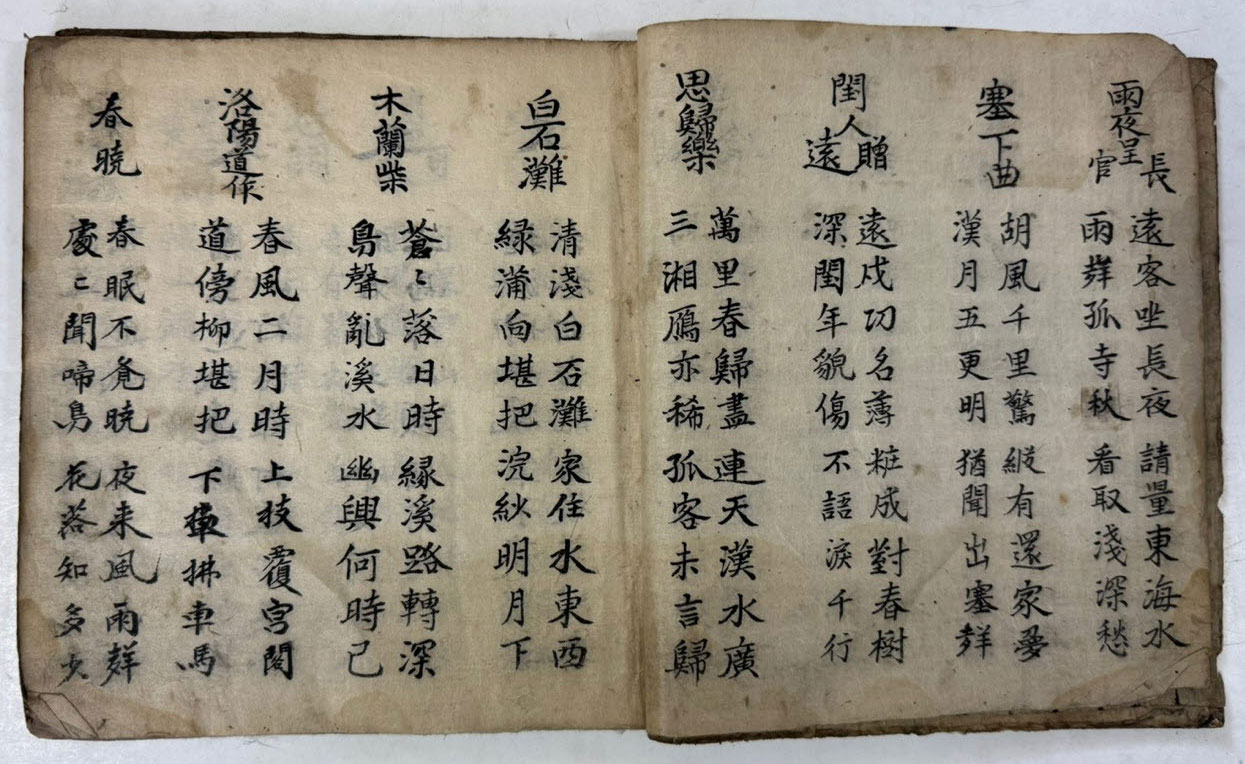 雨夜呈長官
遠客坐長夜 請量東海水
雨聲孤寺秋 看取淺深愁
塞下曲
胡風千里驚 縱有還家夢
漢月五更明 猶聞出塞聲
閨人贈遠
遠戍功名薄 粧成對春樹
深閨年貌傷 不語淚千行
思歸樂
萬里春歸盡 連天漢水廣
三湘鴈亦稀 孤客未言歸
白石灘
清淺白石灘 家住水東西
綠蒲向堪把 浣紗明月下
木蘭柴
蒼〻落日時 緣溪路轉深
鳥聲亂溪水 幽興何時已
洛陽道作
春風二月時 上枝覆宮閣
道傍柳堪把 下拂車馬
春曉
春眠不覺曉 夜来風雨聲
處〻聞啼鳥 花落知多少